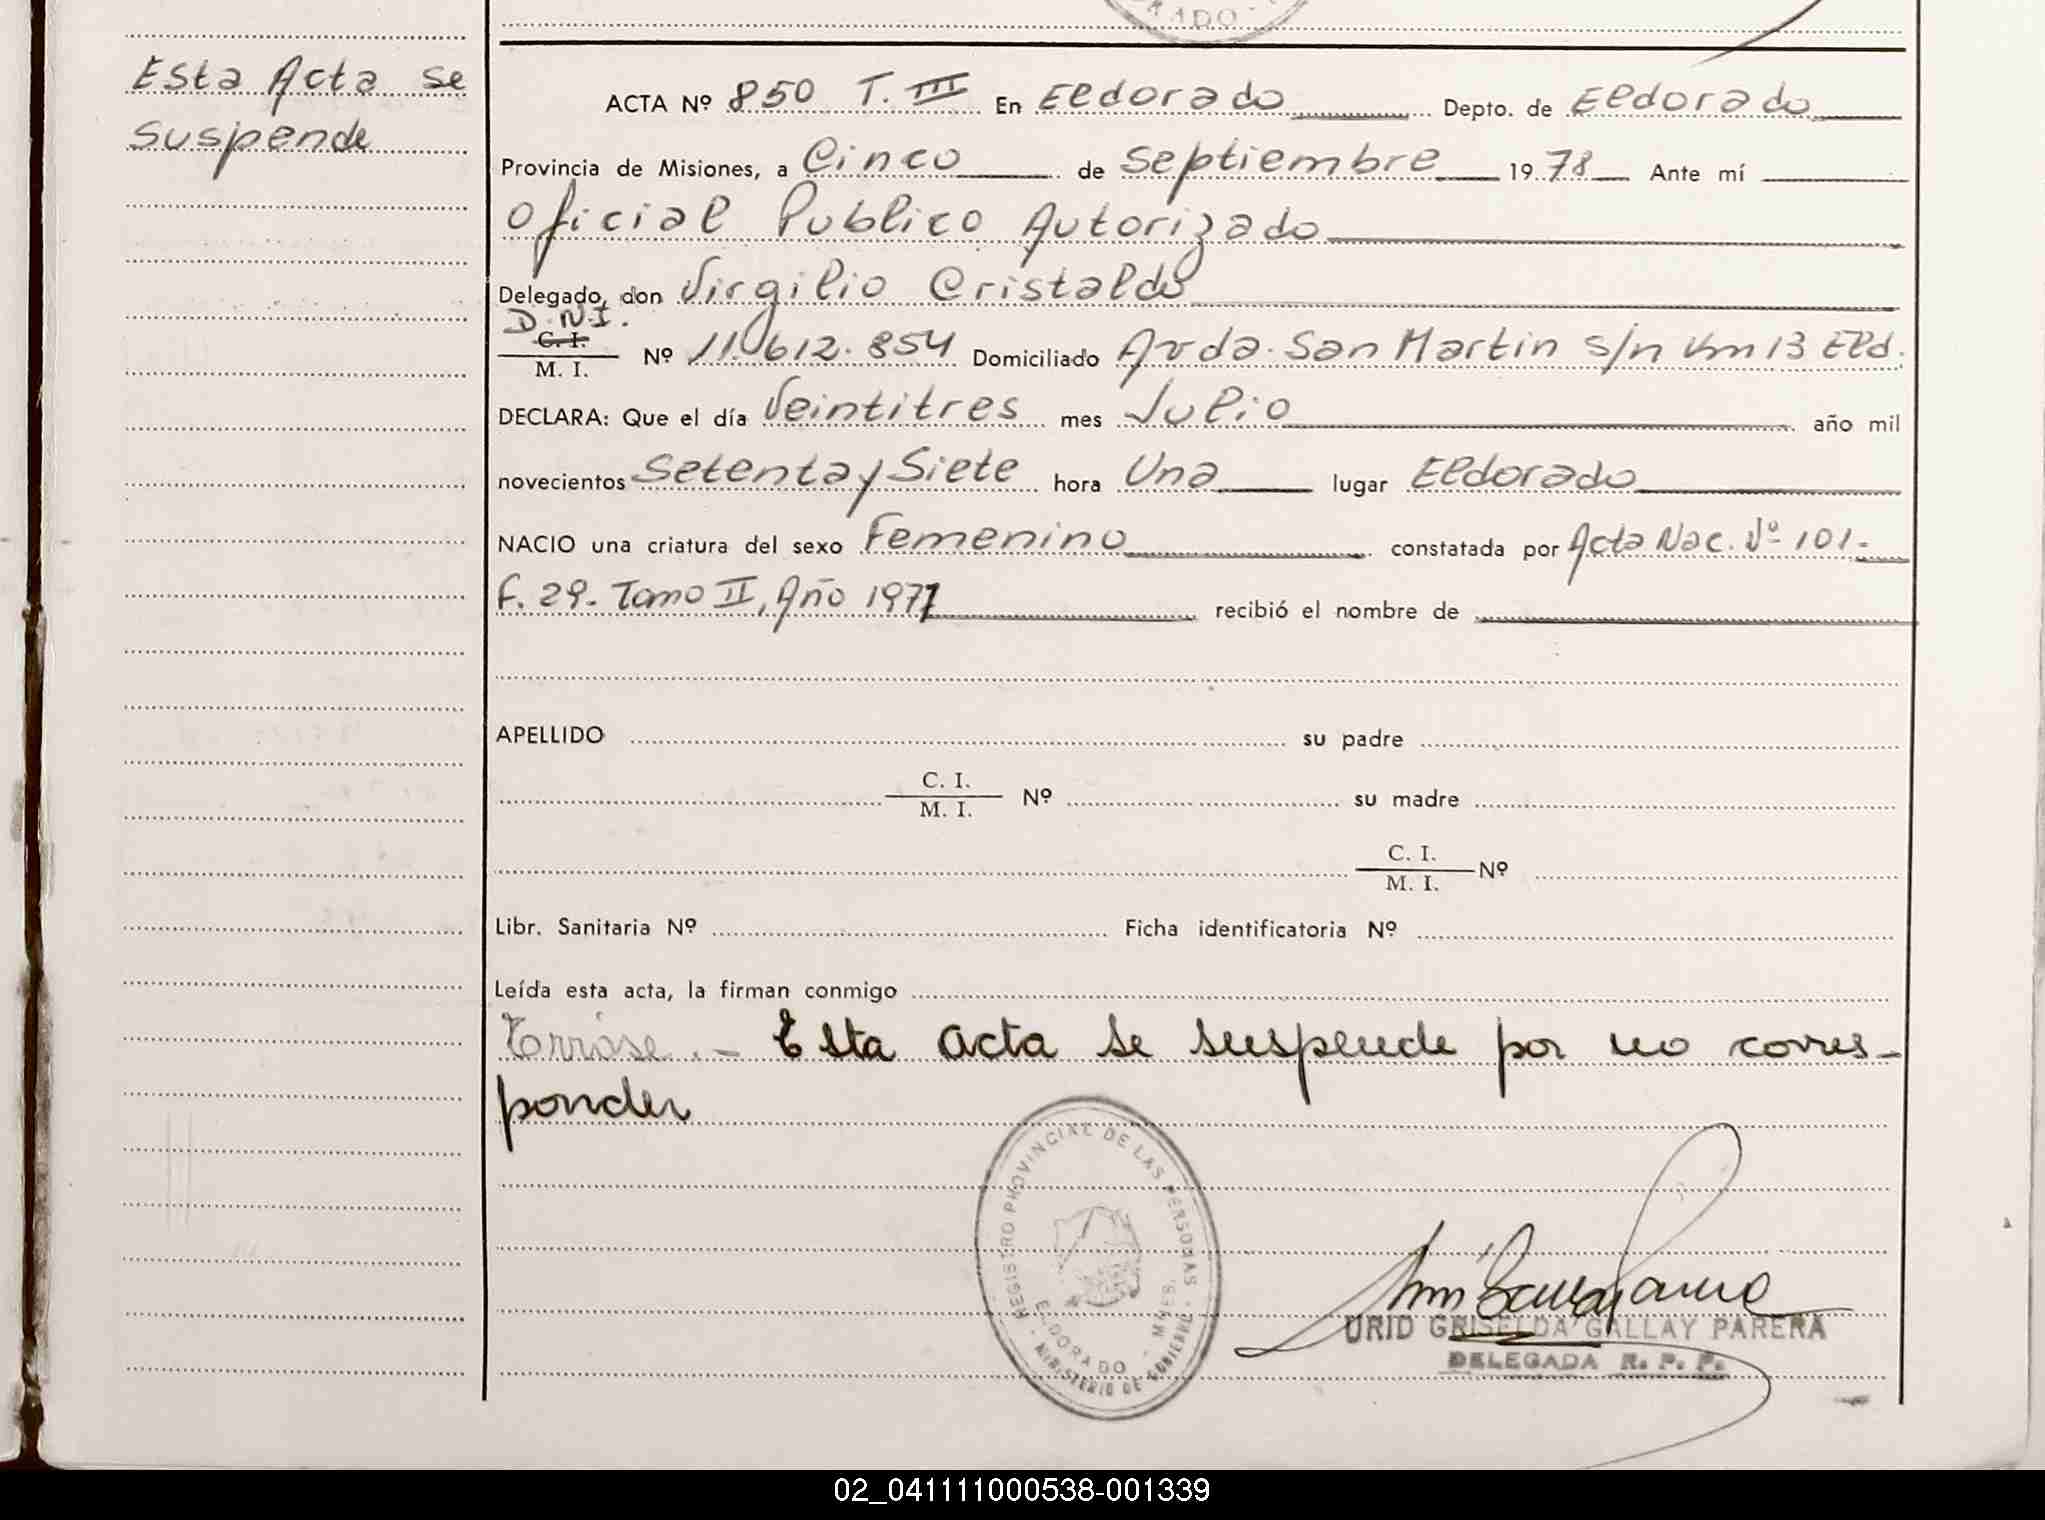 RADO
Esta Acta se
suspende
ACTA Nº 850 T. III En Eldorado Depto. de Eldorado
Provincia de Misiones, a Cinco de Septiembre 1978 Ante mí
Oficial Publico Autorizado
Delegado, don Virgilio Cristaldo
D.N.I.
C. I.
M. I. Nº 11.612.854 Domiciliado Avda. San Martin s/n Km 13 Eld.
DECLARA: Que el día Veintitres mes Julio año mil
novecientos Setenta y Siete hora Una lugar Eldorado
NACIO una criatura del sexo Femenino constatada por Acta Nac. Nº 101-
F. 29. Tomo II, Año 1977 recibió el nombre de
APELLIDO su padre
C. I.
M. I. Nº su madre
C. I.
M. I. Nº
Libr. Sanitaria Nº Ficha identificatoria Nº
Leída esta acta, la firman conmigo
Esta acta se suspende por no corres-
ponder
REGISTRO PROVINCIAL DE LAS PERSONAS
ELDORADO - MNES.
MINISTERIO DE GOBIERNO
URID GRISELDA GALLAY PARERA
DELEGADA R. P. P.
02_041111000538-001339